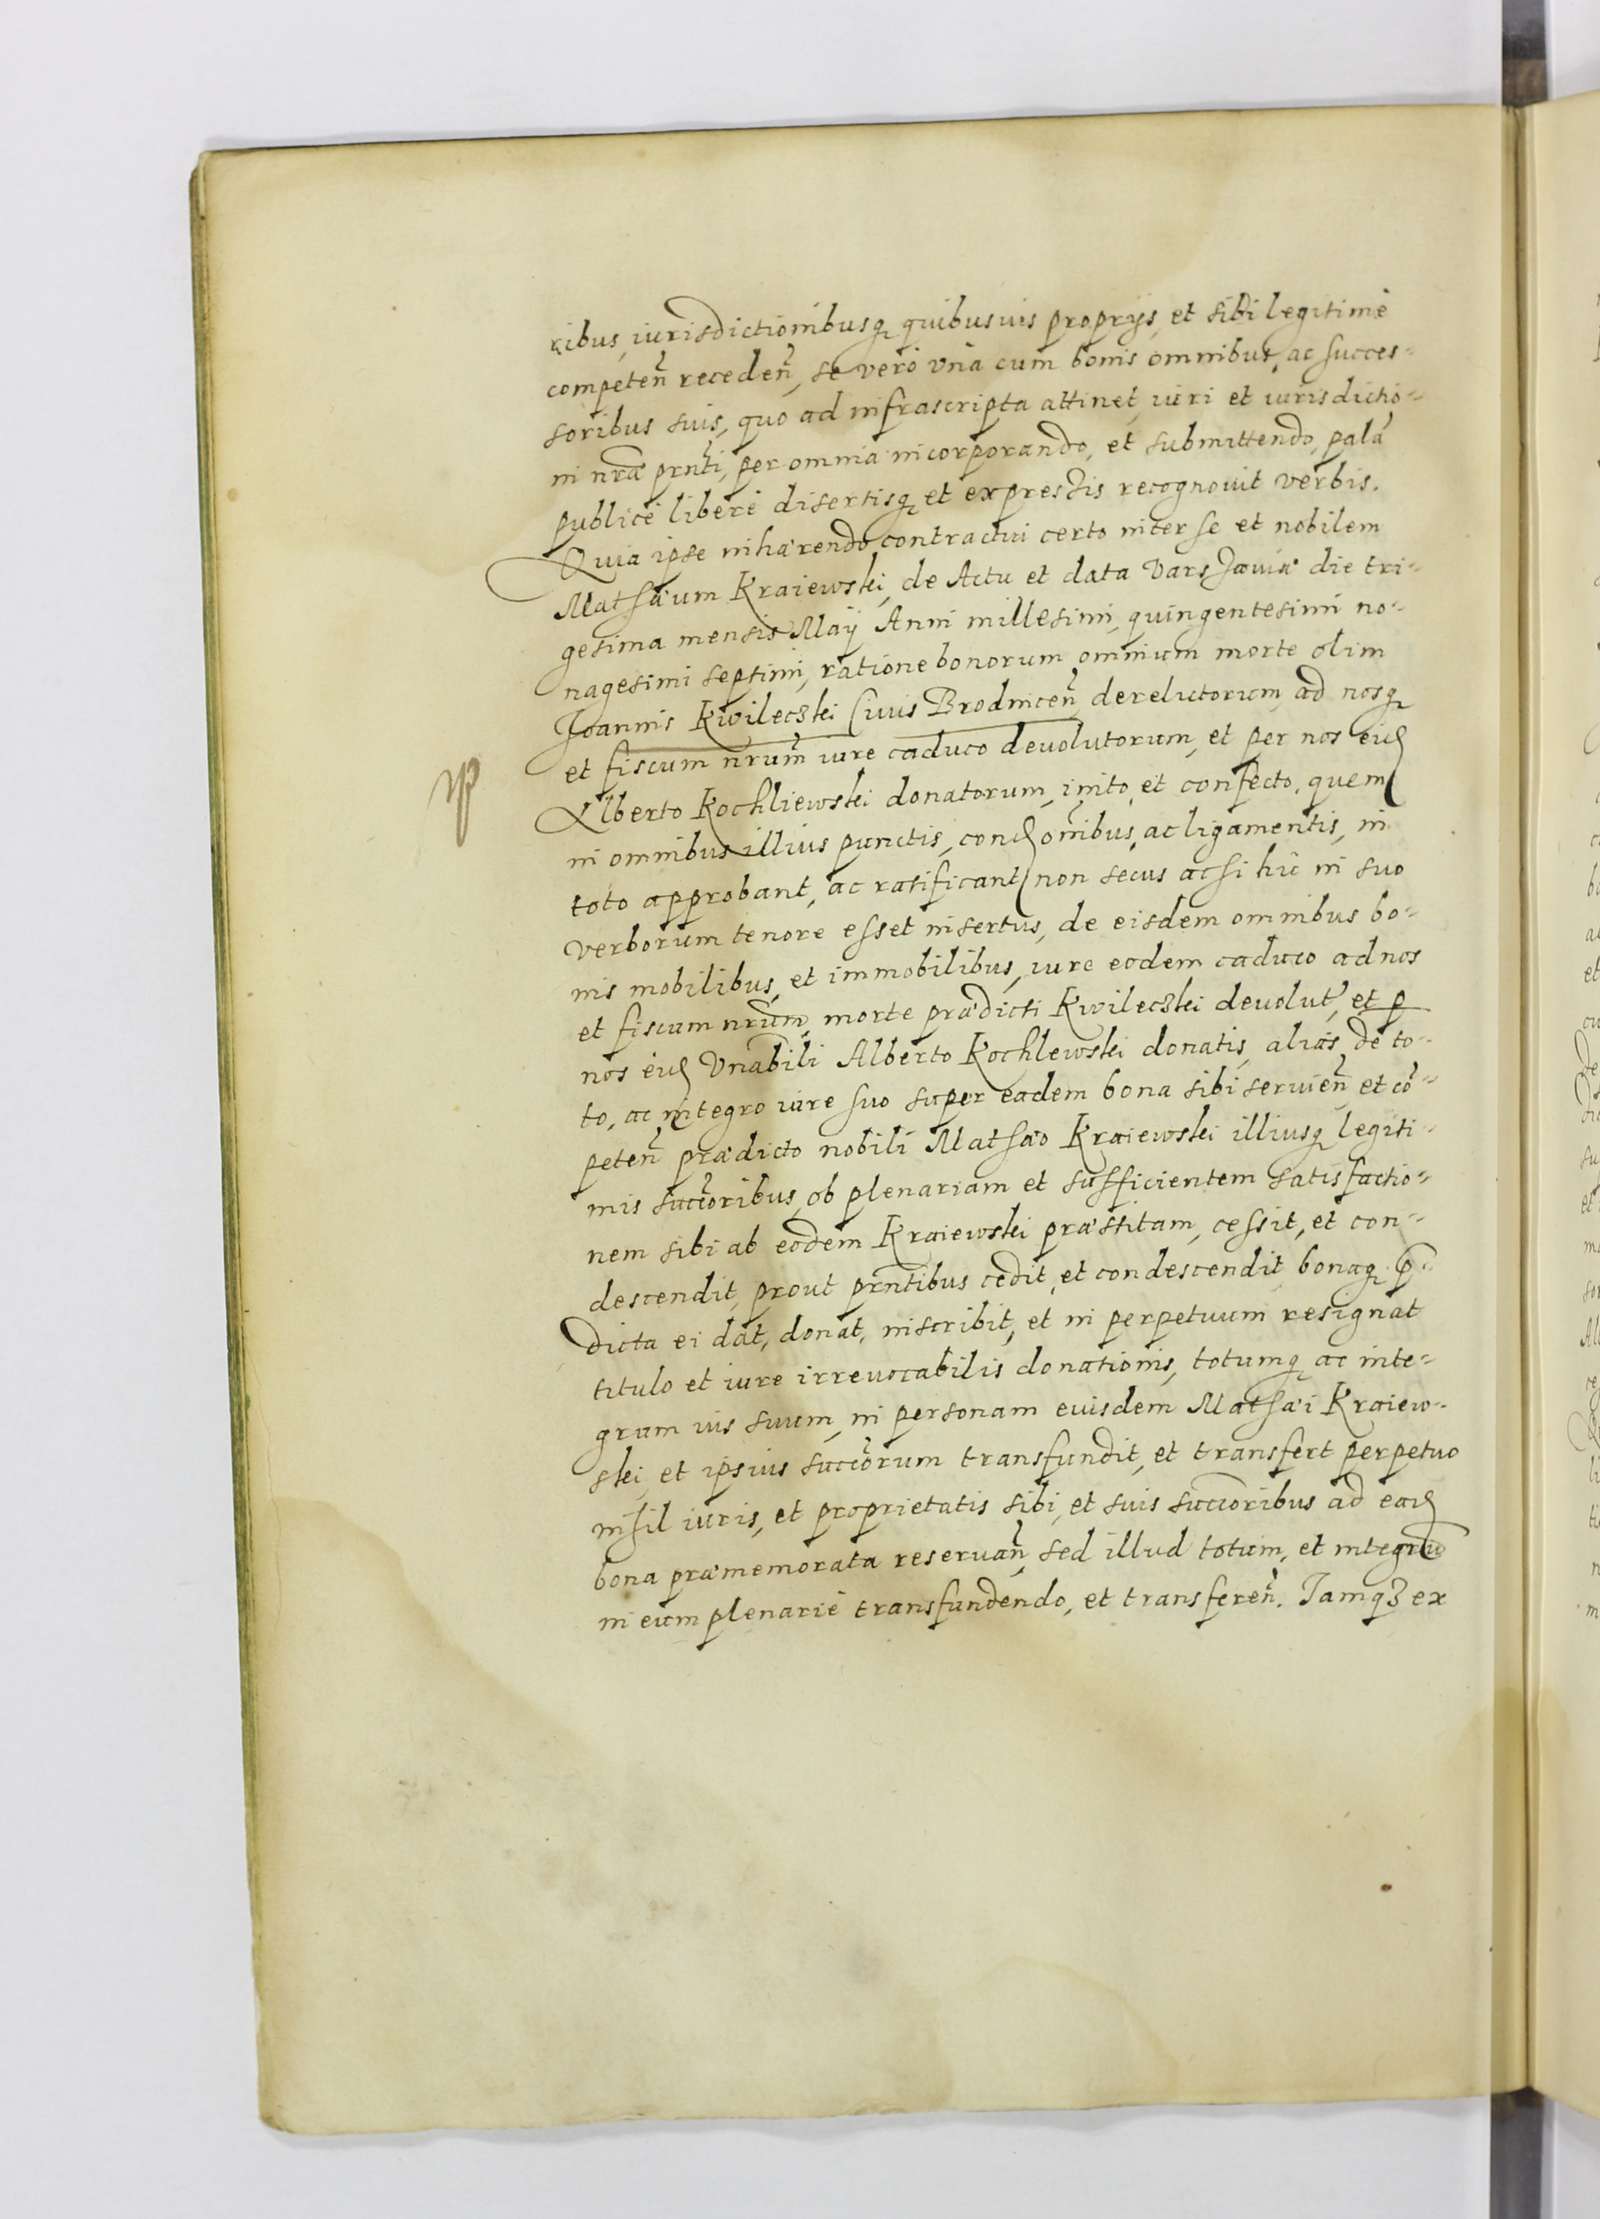 ribus, iurisdictionibusq quibusuis proprijs, et sibi legitimè
competen̄ receden̄, se verò vnà cum bonis omnibus, ac succes=
soribus suis, quo ad infrascripta attinet, iuri et iurisdictio=
ni nr̄æ prn̄ti, per omnia incorporando, et submittendo, palā
publicè liberè disertisq et expressis recognouit verbis.
Quia ipse inhærendo contractui certo inter se et nobilem
Mathæum Kraiewski, de Actu et data Varsauiæ die tri=
gesima mensis Maij Anni millesimi, quingentesimi no=
nagesimi septimi, ratione bonorum omnium morte olim
Joannis Kwileczki Ciuis Brodnicen̄ derelictorum, ad nosq
et fiscum nr̄um iure caduco deuolutorum, et per nos eid
Alberto Kochliewski donatorum, inito, et confecto, quem
in omnibus illius punctis, condōnibus, ac ligamentis, in
toto approbant, ac ratificant non secus ac si hic in suo
verborum tenore esset insertus, de eisdem omnibus bo=
nis mobilibus, et immobilibus, iure eodem caduco ad nos
et fiscum nr̄um, morte prædicti Kwileczki deuolut, et p
nos eid Vnabili Alberto Kochlewski donatis, aliàs de to=
to, ac integro iure suo super eadem bona sibi seruien̄ et cō=
peten̄ prædicto nobili Mathæo Kraiewski illiusq legiti=
mis succ̄oribus, ob plenariam et sufficientem satisfactio=
nem sibi ab eodem Kraiewski præstitam, cessit, et con=
descendit, prout prn̄tibus cedit, et condescendit, bonaq p̄=
dicta ei dat, donat, inscribit, et in perpetuum resignat
titulo et iure irreuocabilis donationis, totumq ac inte=
grum ius suum, in personam eiusdem Mathæi Kraiew=
ski, et ipsius succ̄orum transfundit, et transfert perpetuo
nihil iuris, et proprietatis sibi, et suis succ̄oribus ad ead
bona præmemorata reseruan̄, sed illud totum, et integrū
in eum plenariè transfundendo, et transferen̄. Iamq3 ex